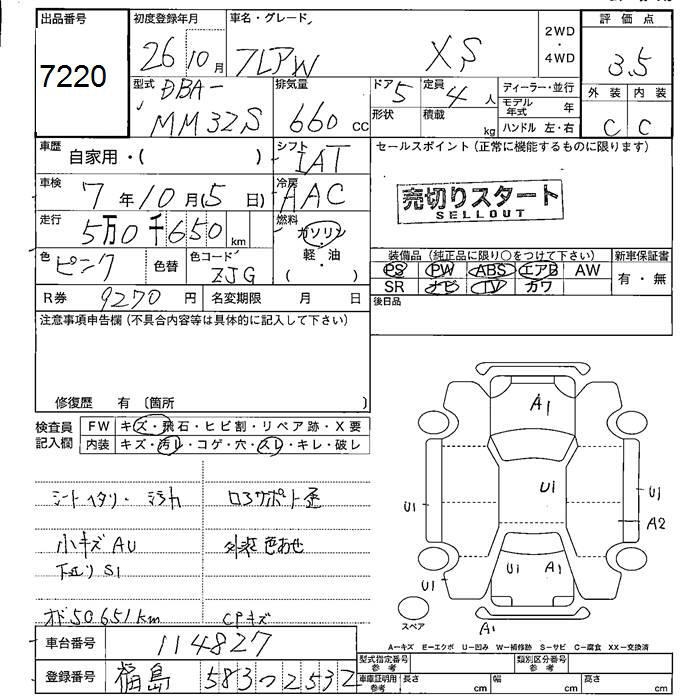 出品番号 7220
初度登録年月 26 10月
車名・グレード フレアW XS
2WD ・ 4WD
評価点 3.5
型式 DBA- MM32S
排気量 660 cc
ドア 5 定員 4人
形状 積載 kg
ディーラー・並行
モデル年式 年
ハンドル 左・右
外装 C 内装 C
車歴 自家用・( )
シフト IAT
セールスポイント (正常に機能するものに限ります)
車検 7年10月(5日)
冷房 AAC
売切りスタート
SELLOUT
走行 5万0千650 km
燃料 ガソリン 軽・油 ( )
色 ピンク 色替 色コード ZJG
装備品 (純正品に限り○をつけて下さい) 新車保証書
PS PW ABS エアB AW 有・無
SR ナビ TV カワ
R券 9270円 名変期限 月 日
後日品
注意事項申告欄 (不具合内容等は具体的に記入して下さい)
修復歴 有 〔箇所
検査員記入欄 FW キズ・飛石・ヒビ割・リペア跡・X要
内装 キズ・汚レ・コゲ・穴・スレ・キレ・破レ
シートヘタリ・シミ ロアサポート歪
小キズ AU 外装色あせ
下廻リ S1
オド 50.651km CPキズ
A1
U1
U1
U1
A2
U1
A1
U1
A1
スペア
A-キズ E-エクボ U-凹み W-補修跡 S-サビ C-腐食 XX-交換済
車台番号 114827
型式指定番号 参考 類別区分番号 参考
登録番号 福島 583 つ 2532
車庫証明用 参考 長さ cm 幅 cm 高さ cm